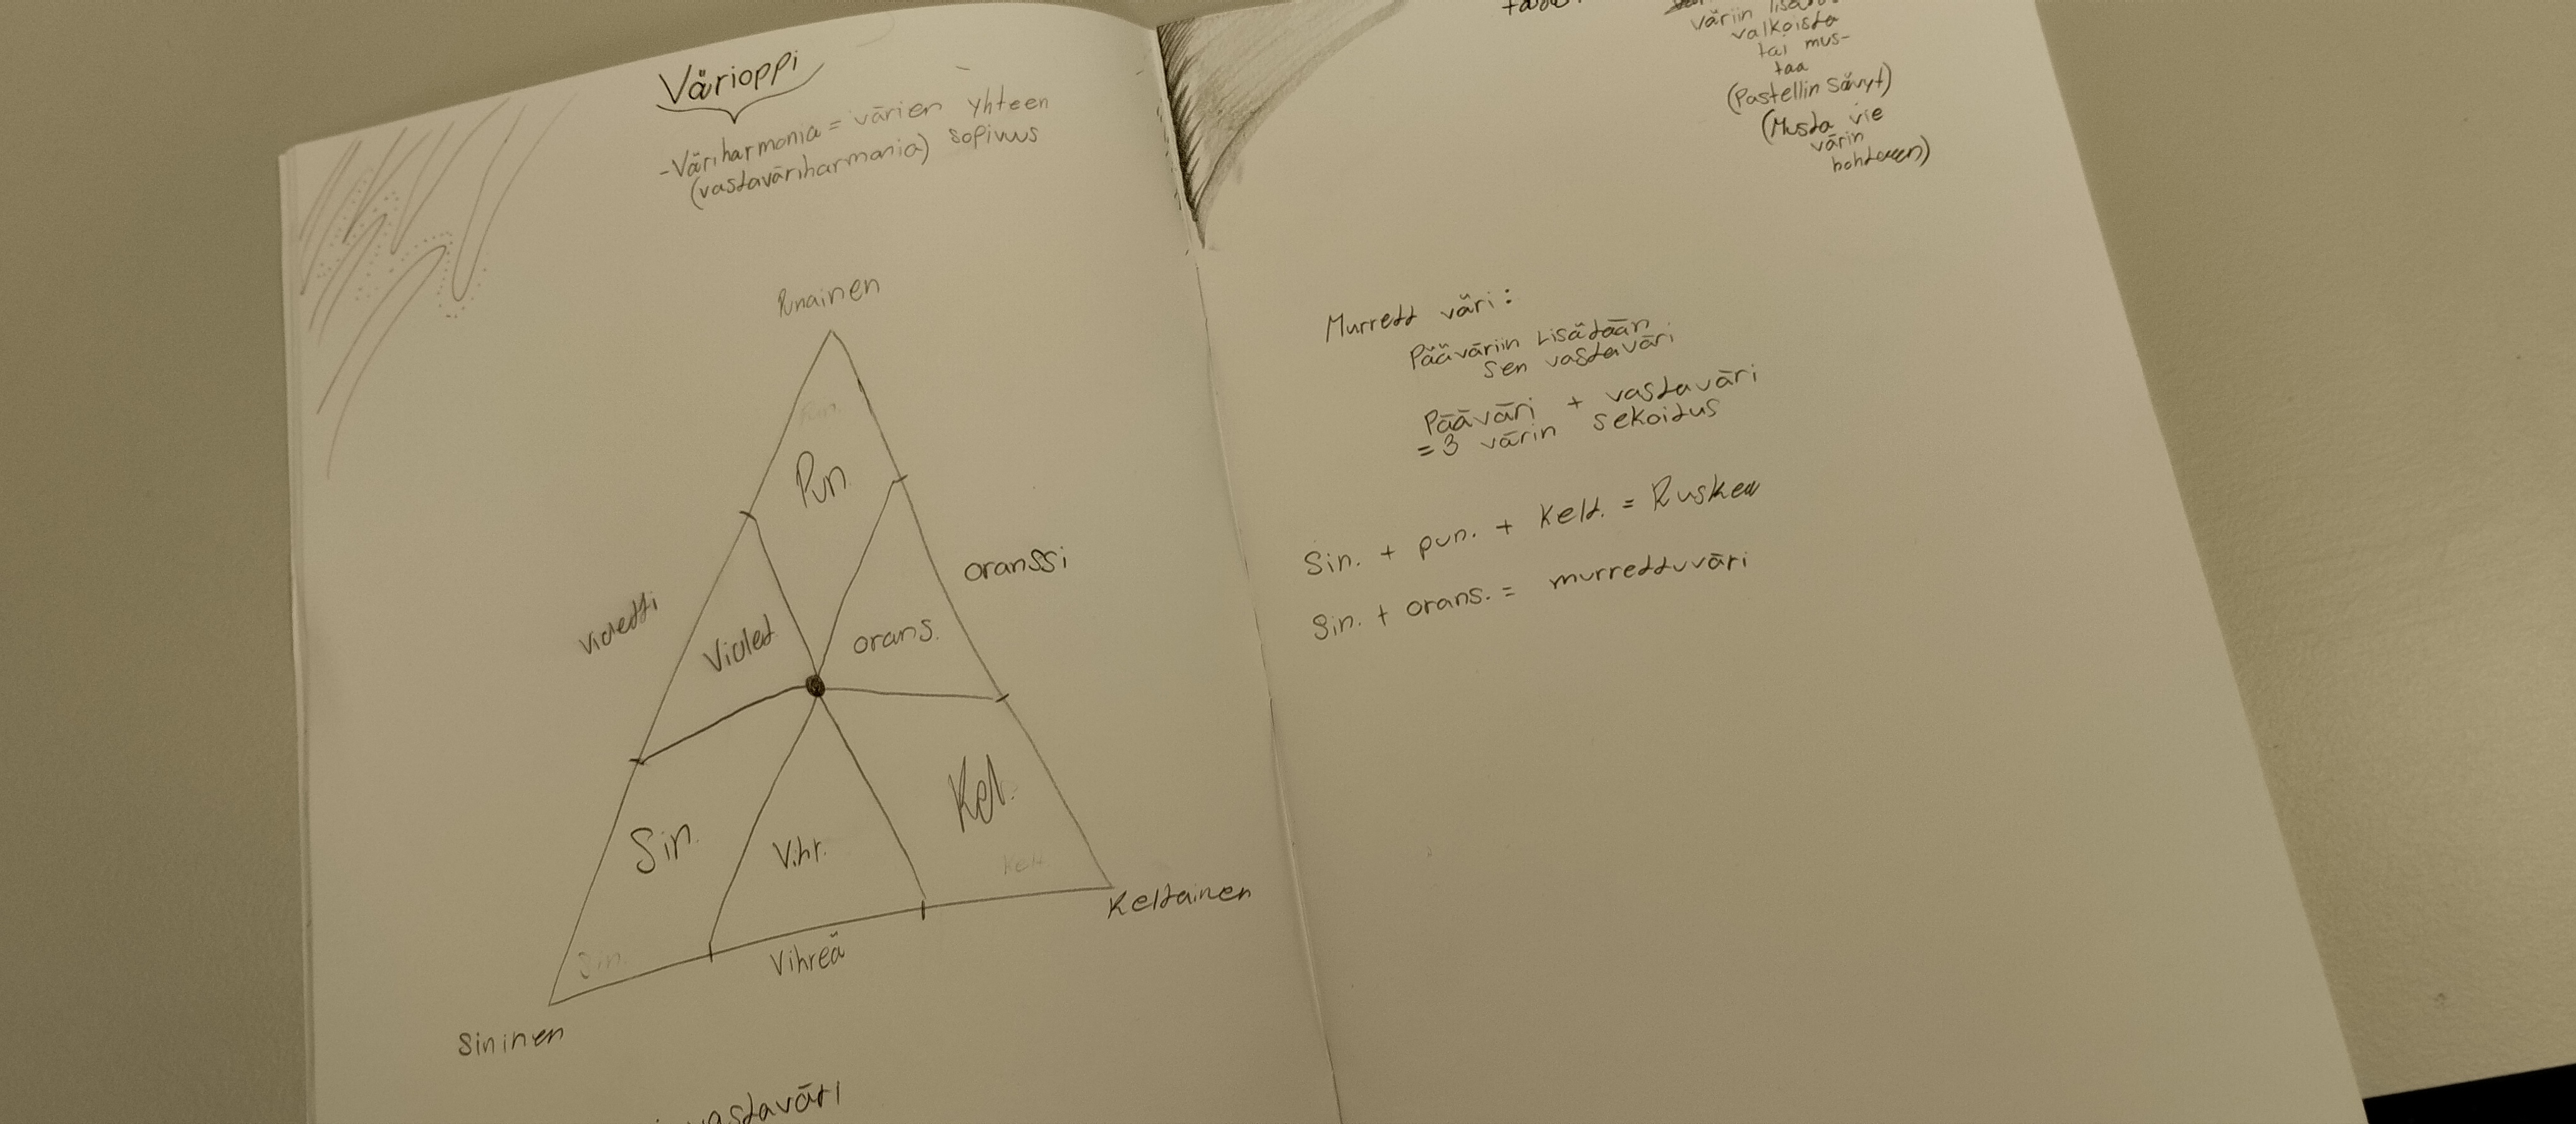 Värioppi
-Väriharmonia = värien yhteen
(vastaväriharmonia) sopivuus
Punainen
Pun.
Pun.
oranssi
violetti
Violet.
orans.
Kel.
Sin.
Vihr.
Kelt.
Keltainen
Sin.
Vihreä
Sininen
vastaväri
väriin
valkoista
tai mus-
taa
(Pastellin sävyt)
(Musta vie
värin
hohteen)
Murrett väri:
Pääväriin Lisätään
sen vastaväri
Pääväri + vastaväri
= 3 värin sekoitus
Sin. + pun. + Kelt. = Ruskea
Sin. + orans. = murrettuväri